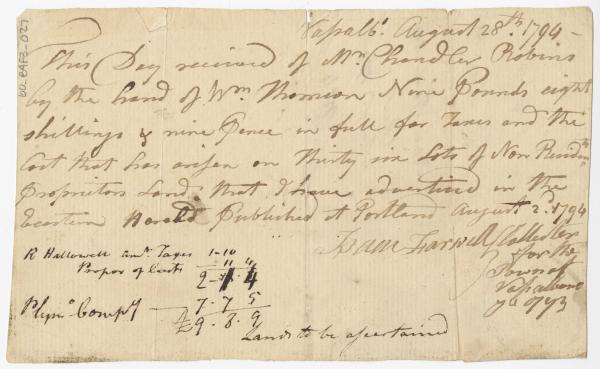 60_EAP3_027
Vassalbº. August 28.th 1794 -
This Day received of Mr. Chandler Robins
by the hand of Wm. Thomson Nine Pounds eight
shillings & nine Pence in full for Taxes and the
Cost that has arisen on thirty six Lots of Non Resident
Proprietors Land that I have advertized in the
Eastern Herald Published at Portland August 2.d 1794
Isaac Farwell Collector
for the
Town of
Vassalboro
ye 1793
R Hallowell amt. Taxes 1-10
Propor of Costs 11 4
2 - 1 4
Plymº Compy 7. 7 5
£9. 8. 9
Lands to be ascertained